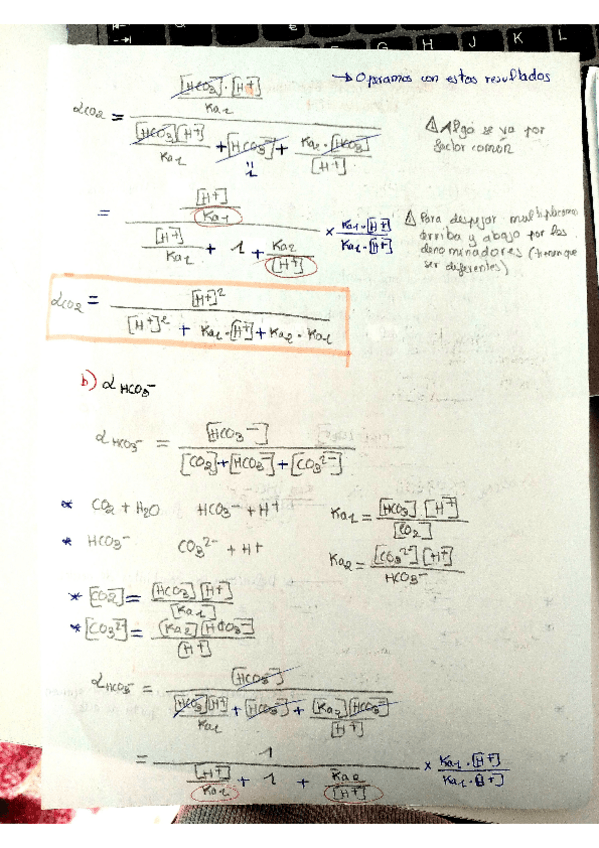 → Operamos con estos resultados
αCO2 = ([HCO3⁻]·[H⁺] / Ka1) / ([HCO3⁻][H⁺] / Ka1 + [HCO3⁻] + Ka2·[HCO3⁻] / [H⁺])
"
1
⚠ Algo se va por
factor común
= ([H⁺] / Ka1) / ([H⁺] / Ka1 + 1 + Ka2 / [H⁺]) × Ka1·[H⁺] / Ka1·[H⁺]
⚠ Para despejar multiplicamos
arriba y abajo por los
denominadores (tienen que
ser diferentes)
αCO2 = [H⁺]² / ([H⁺]² + Ka1·[H⁺] + Ka2·Ka1)
b) αHCO3⁻
αHCO3⁻ = [HCO3⁻] / ([CO2]+[HCO3⁻]+[CO3²⁻])
* CO2 + H2O HCO3⁻ + H⁺ Ka1 = [HCO3⁻][H⁺] / [CO2]
* HCO3⁻ CO3²⁻ + H⁺ Ka2 = [CO3²⁻][H⁺] / HCO3⁻
* [CO2] = [HCO3⁻][H⁺] / [Ka1]
* [CO3²⁻] = [Ka2][HCO3⁻] / [H⁺]
αHCO3⁻ = [HCO3⁻] / ([HCO3⁻][H⁺] / Ka1 + [HCO3⁻] + [Ka2][HCO3⁻] / [H⁺])
= 1 / ([H⁺] / Ka1 + 1 + Ka2 / [H⁺]) × Ka1·[H⁺] / Ka1·[H⁺]